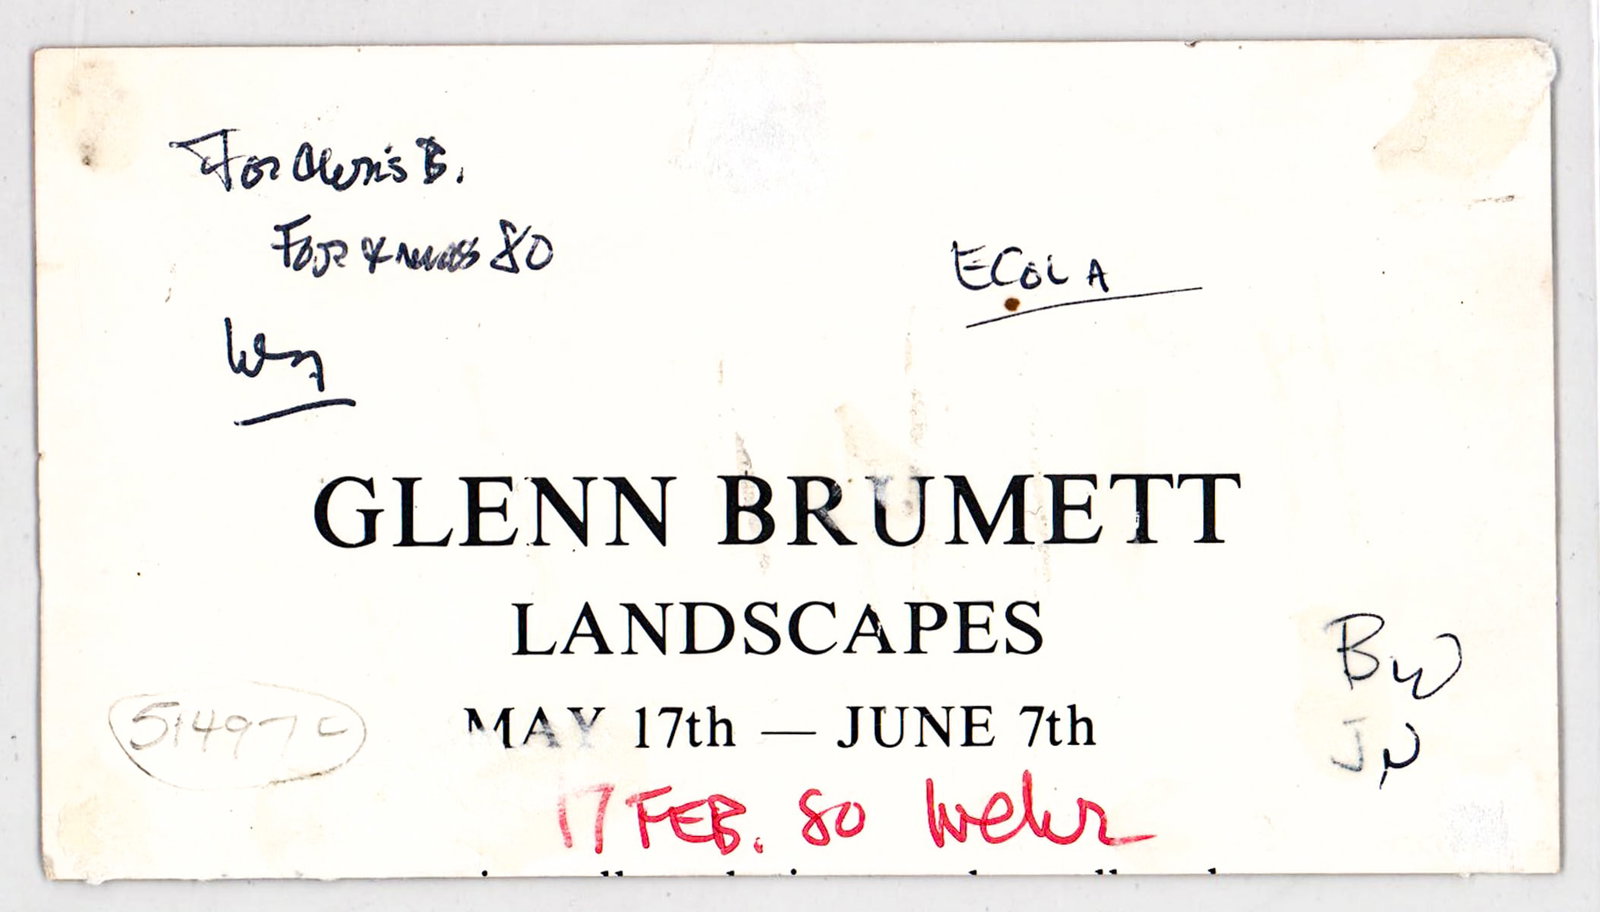 For Chris B.
For Xmas 80
ECOLA
GLENN BRUMETT
LANDSCAPES
MAY 17th — JUNE 7th
BW
JN
51497C
17 FEB. 80 Wehr